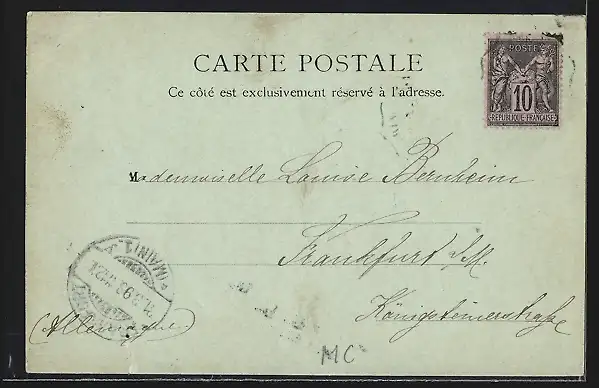 CARTE POSTALE
Ce côté est exclusivement réservé à l'adresse.
POSTE
10
REPUBLIQUE FRANÇAISE
Mademoiselle Louise Bernheim
Frankfurt a/M.
Königsteinerstraße
(Allemagne)
(MAIN) 1
MC